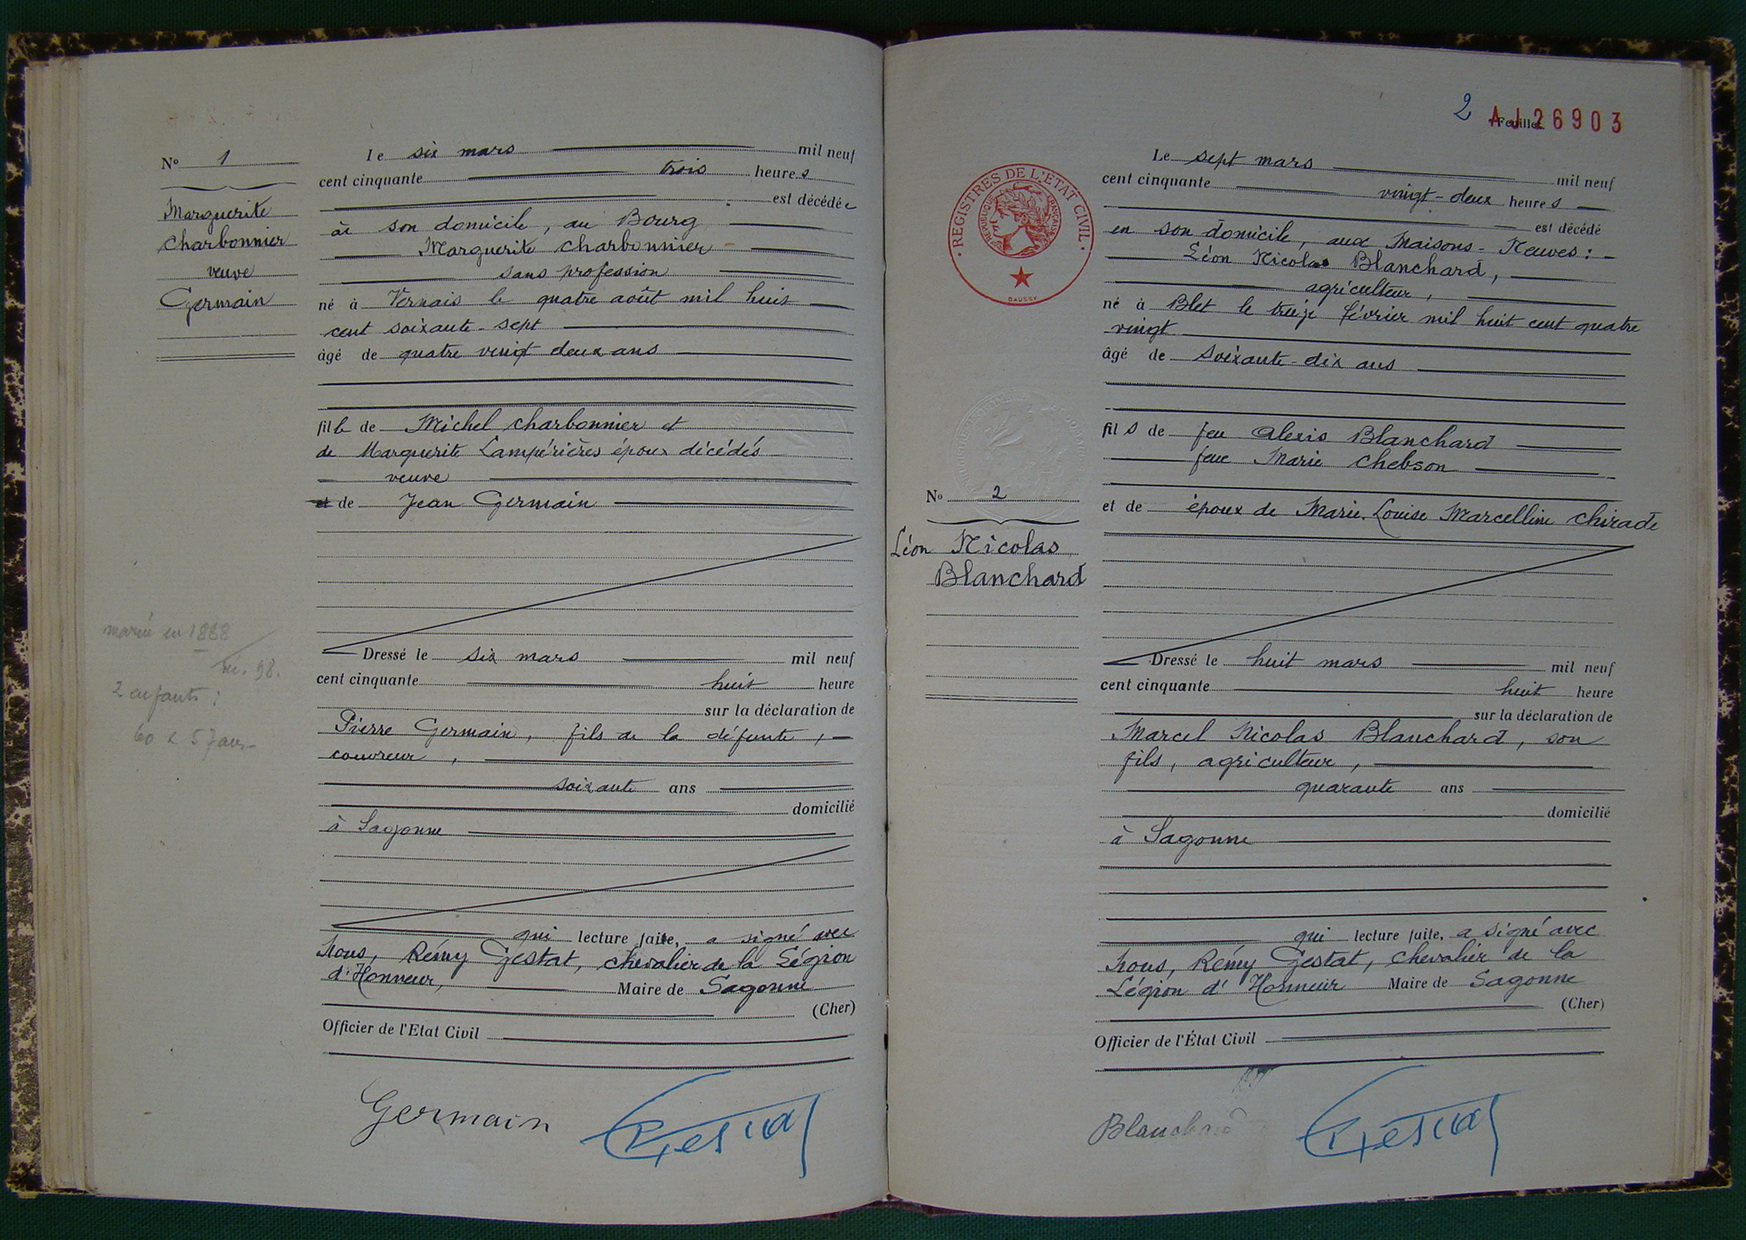 N° 1
Marguerite
Charbonnier
veuve
Germain
Le six mars mil neuf
cent cinquante trois heures
est décédée
à son domicile, au Bourg
Marguerite Charbonnier
sans profession
né à Vernais le quatre août mil huit
cent soixante-sept
âgé de quatre vingt deux ans
fille de Michel Charbonnier et
de Marguerite Lampérières époux décédés
veuve
et de Jean Germain
marié en 1888
98.
2 enfants :
60 & 57 ans
Dressé le six mars mil neuf
cent cinquante huit heure
sur la déclaration de
Pierre Germain, fils de la défunte,
couvreur,
soixante ans
domicilié
à Sagonne
qui lecture faite, a signé avec
Nous, Rémy Gestat, chevalier de la Légion
d'Honneur, Maire de Sagonne
(Cher)
Officier de l'Etat Civil
Germain
Gestat
2 Feuillet AJ 26903
REGISTRES DE L'ÉTAT CIVIL
RÉPUBLIQUE FRANÇAISE
DAUSSY
N° 2
Léon Nicolas
Blanchard
Le sept mars mil neuf
cent cinquante vingt-deux heures
est décédé
en son domicile, aux Maisons-Neuves :
Léon Nicolas Blanchard,
agriculteur,
né à Blet le treize février mil huit cent quatre
vingt
âgé de soixante-dix ans
fils de feu Alexis Blanchard
feue Marie Chebson
et de époux de Marie-Louise Marcelline Chirade
Dressé le huit mars mil neuf
cent cinquante huit heure
sur la déclaration de
Marcel Nicolas Blanchard, son
fils, agriculteur,
quarante ans
domicilié
à Sagonne
qui lecture faite, a signé avec
Nous, Rémy Gestat, Chevalier de la
Légion d'Honneur Maire de Sagonne
(Cher)
Officier de l'État Civil
Blanchard
Gestat